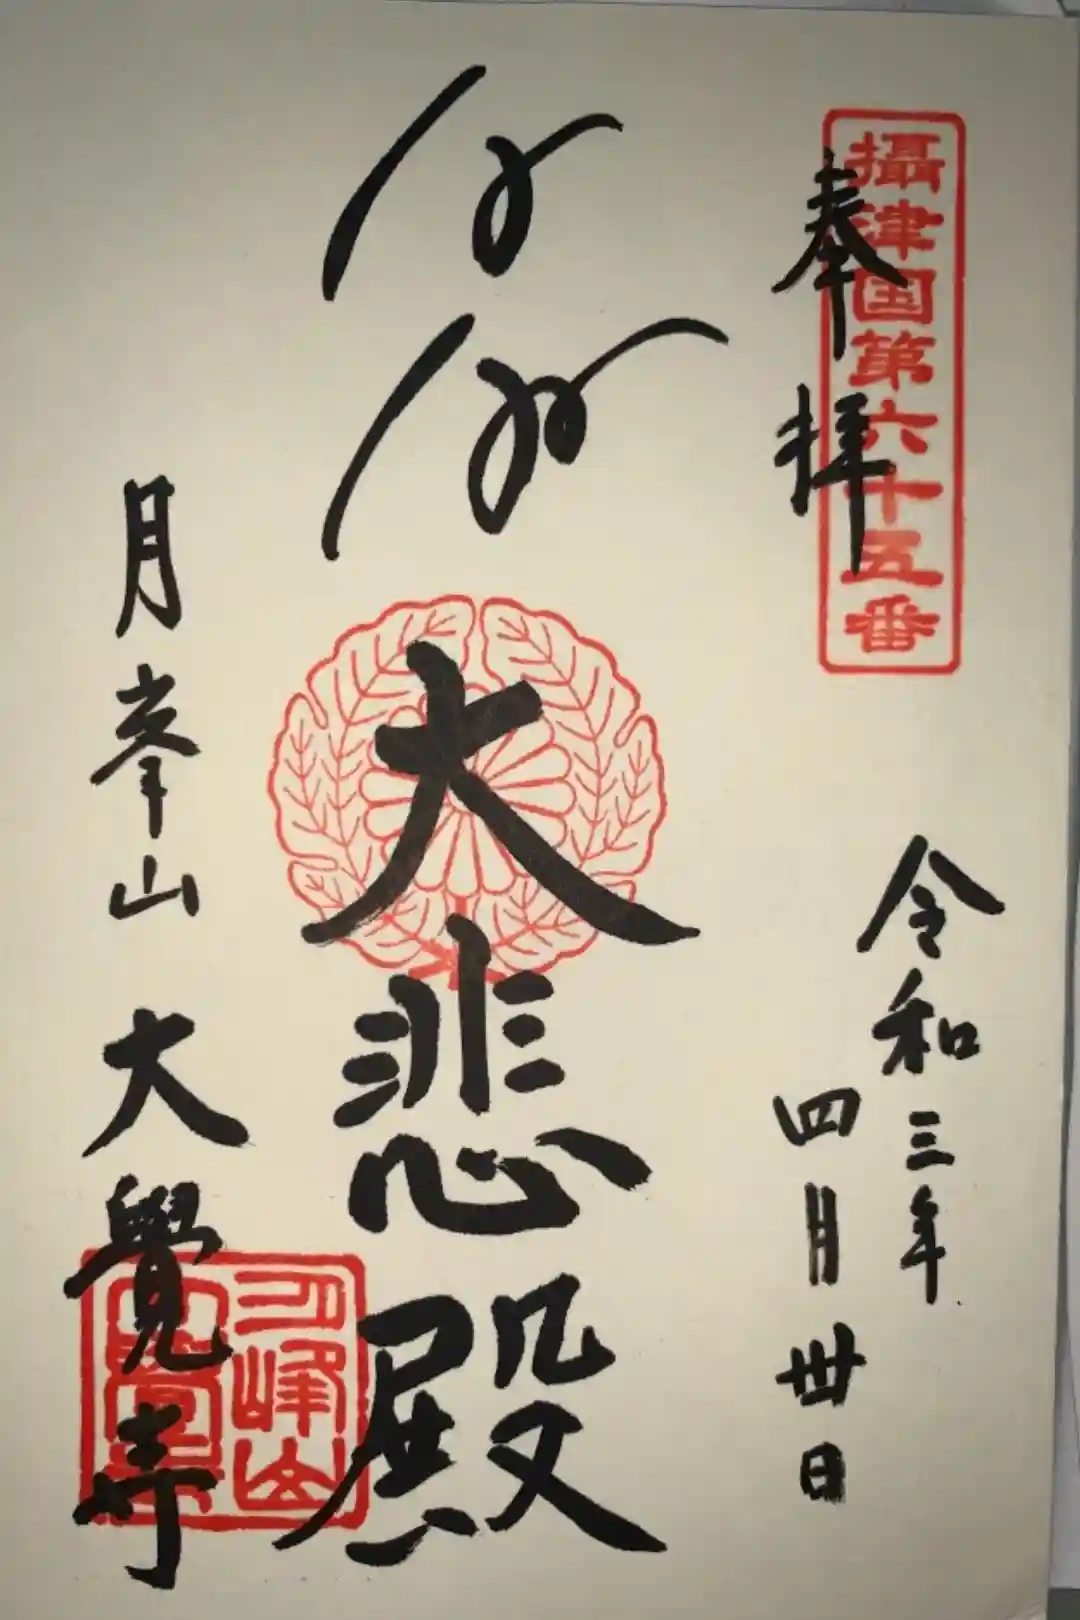 攝津国第六十五番
奉拝
令和三年
四月卅日
大悲殿
月峯山 大覺寺
月峰山